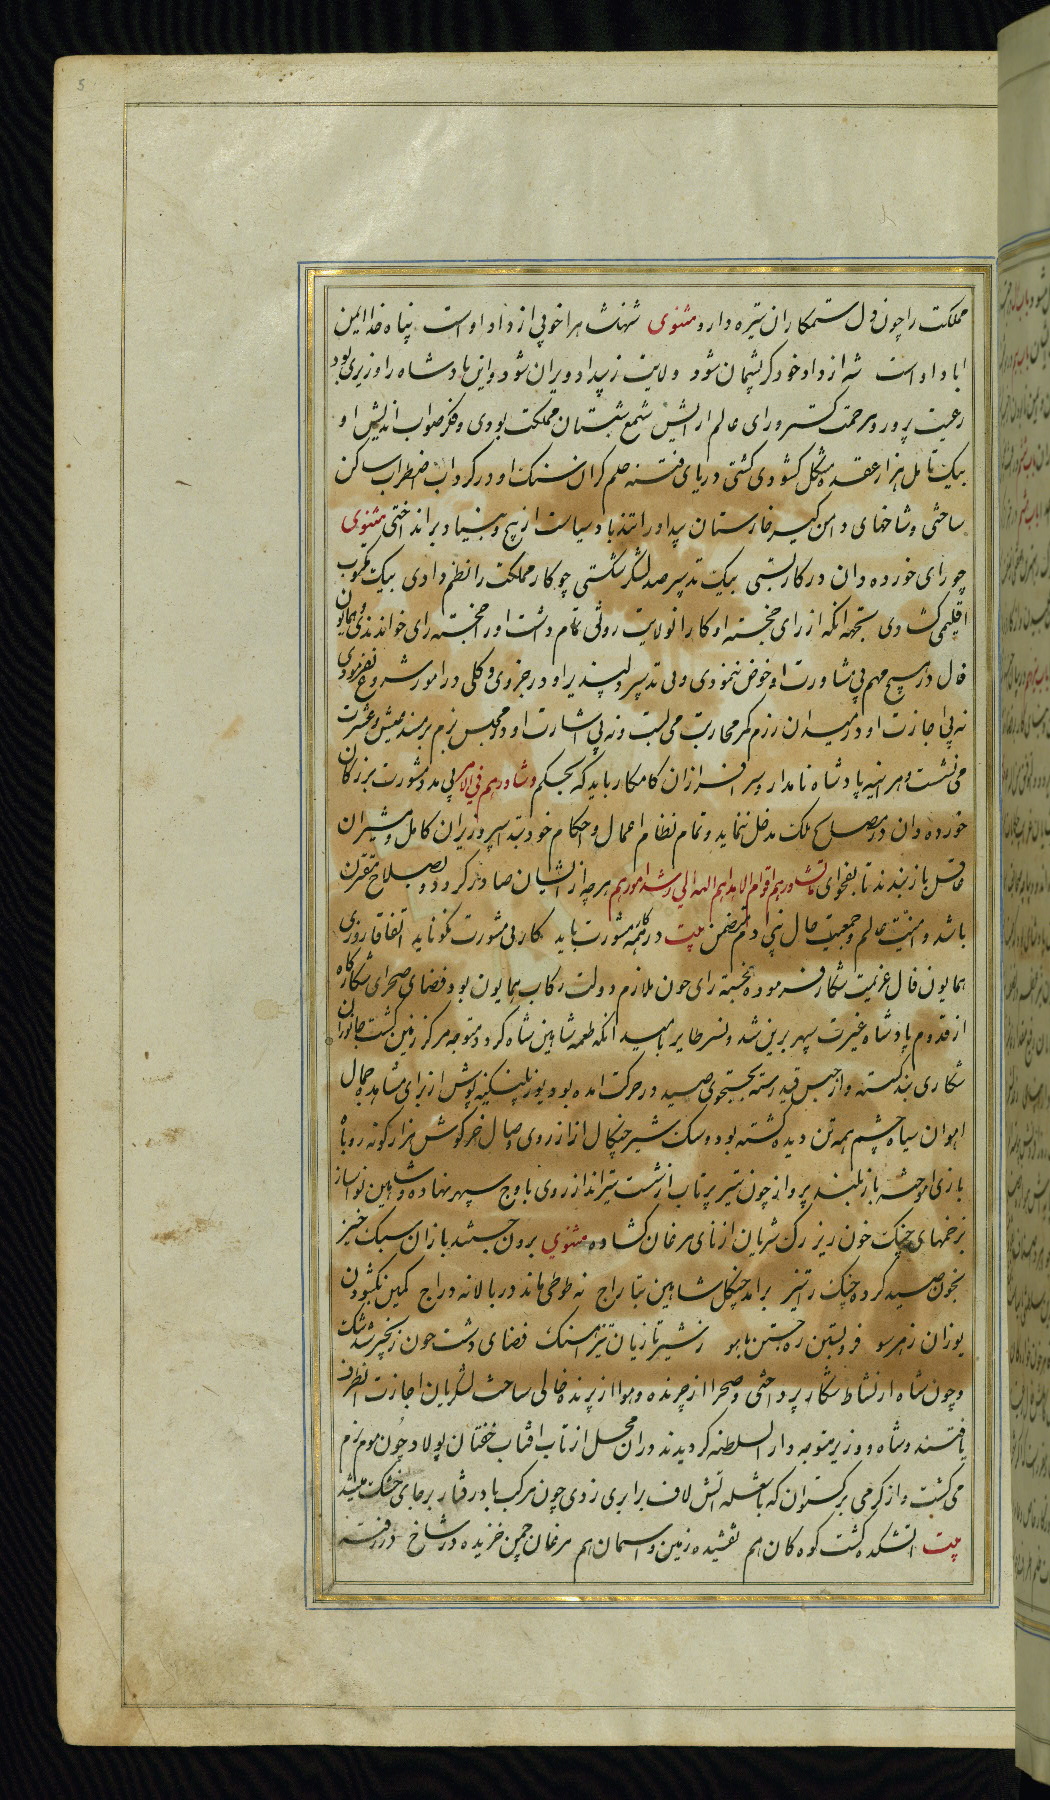 5
مملکت را چون دل ستمکاران تیره دارد مثنوی شهنشه را خوبی از داد اوست پناه خدا ایمن
اباد اوست شه از داد خود گر پشیمان شود ولایت ز بیداد ویران شود و این پادشاه را وزیری بود
رعیت پرور و مرحمت گستر و رای عالم ارایش شمع شبستان مملکت بودی و فکر صواب اندیش او
بیک تامل هزار عقده مشکل گشودی کشتی دریای فتنه حلم گران سنک او در گرداب اضطراب ساکن
ساختی و شاخهای دامن گیر خارستان بیداد را تندباد سیاست از بیخ و بنیاد برانداختی مثنوی
چو رای خورده دان در کار بستی بیک تدبیر صد لشکر شکستی چو کار مملکت را نظم دادی بیک مکتوب
اقلیمی گشادی بجهة انکه از رای خجسته او کار ان ولایت رونقی تمام داشت او را خجسته رای خواندندی و همایون
فال در هیچ مهم بی مشاورت او خوض ننمودی و بی تدبیر دلپذیر او در جزوی و کلی در امور شروع نفرمودی
نه بی اجازت او در میدان رزم کمر محاربت می بست و نه بی اشارت او در مجلس بزم بر مسند عیش و عشرت
می نشست و هر اینه پادشاه نامدار و سرافرازان کامکار باید که بحکم و شاورهم فی الامر بی مدد مشورت بزرگان
خورده دان در مصالح ملک مدخل ننماید و تمام نظام اعمال و احکام خود بتدبیر وزیران کامل و مشیران
عاقل باز بندند تا بفحوای ما تشاور هم اقوام الا هداهم الله الی رشد امورهم هر چه از ایشان صادر گردد بصلاح مقترن
باشد و امنیت عالم و جمعیت حال بنی ادم را متضمن بیت در همه مشورت باید کار بی مشورت نکو ناید اتفاقا روزی
همایون فال عزیمت شکار فرموده خجسته رای چون ملازم دولت رکاب همایون بود فضای صحرای شکارگاه
از قدوم پادشاه غیرت سپهر برین شد و نسر طایر بامید انکه طعمه شاهین شاه گردد متوجه مرکز زمین گشت جانوران
شکاری بند گسسته و از حبس قید رسته بجستجوی صید در حرکت امده بود یوز پلنگینه پوش از برای مشاهده جمال
اهوان سیاه چشم همه تن دیده گشته بود و سک شیر چنگال از ارزوی وصال خرگوش هزار گونه روباه
بازی اموخته باز بلند پرواز چون تیر پرتاب از شست تیرانداز روی باوج سپهر نهاده و شاهین نواساز
بزخمهای چنگ خون ریز رک شریان از نای مرغان گشاده مثنوی برون جستند بازان سبک خیز
بخون صید کرده چنک را تیز برامد چنگل شاهین بتاراج نه طوطی ماند در بالا نه دراج کمین بگشودن
یوزان ز هر سو فرو بستن ره جستن باهو ز شیر تازیان تیز اهنک فضای دشت چون نخجیر شد تنک
و چون شاه از نشاط شکار پرداختی و صحرا از چرنده و هوا از پرنده خالی ساخت لشکریان اجازت انصراف
یافتند و شاه و وزیر متوجه دار السلطنه گردیدند دران محل از تاب افتاب خفتان پولاد چون موم نرم
می گشت و از گرمی برگستوان که با شعله اتش لاف برابری زدی چون مرکب باد رفتار بر جای خشک میشد
بیت اتشکده گشت کوه و کان هم تفسیده زمین و اسمان هم مرغان چمن خزیده در شاخ در رفته